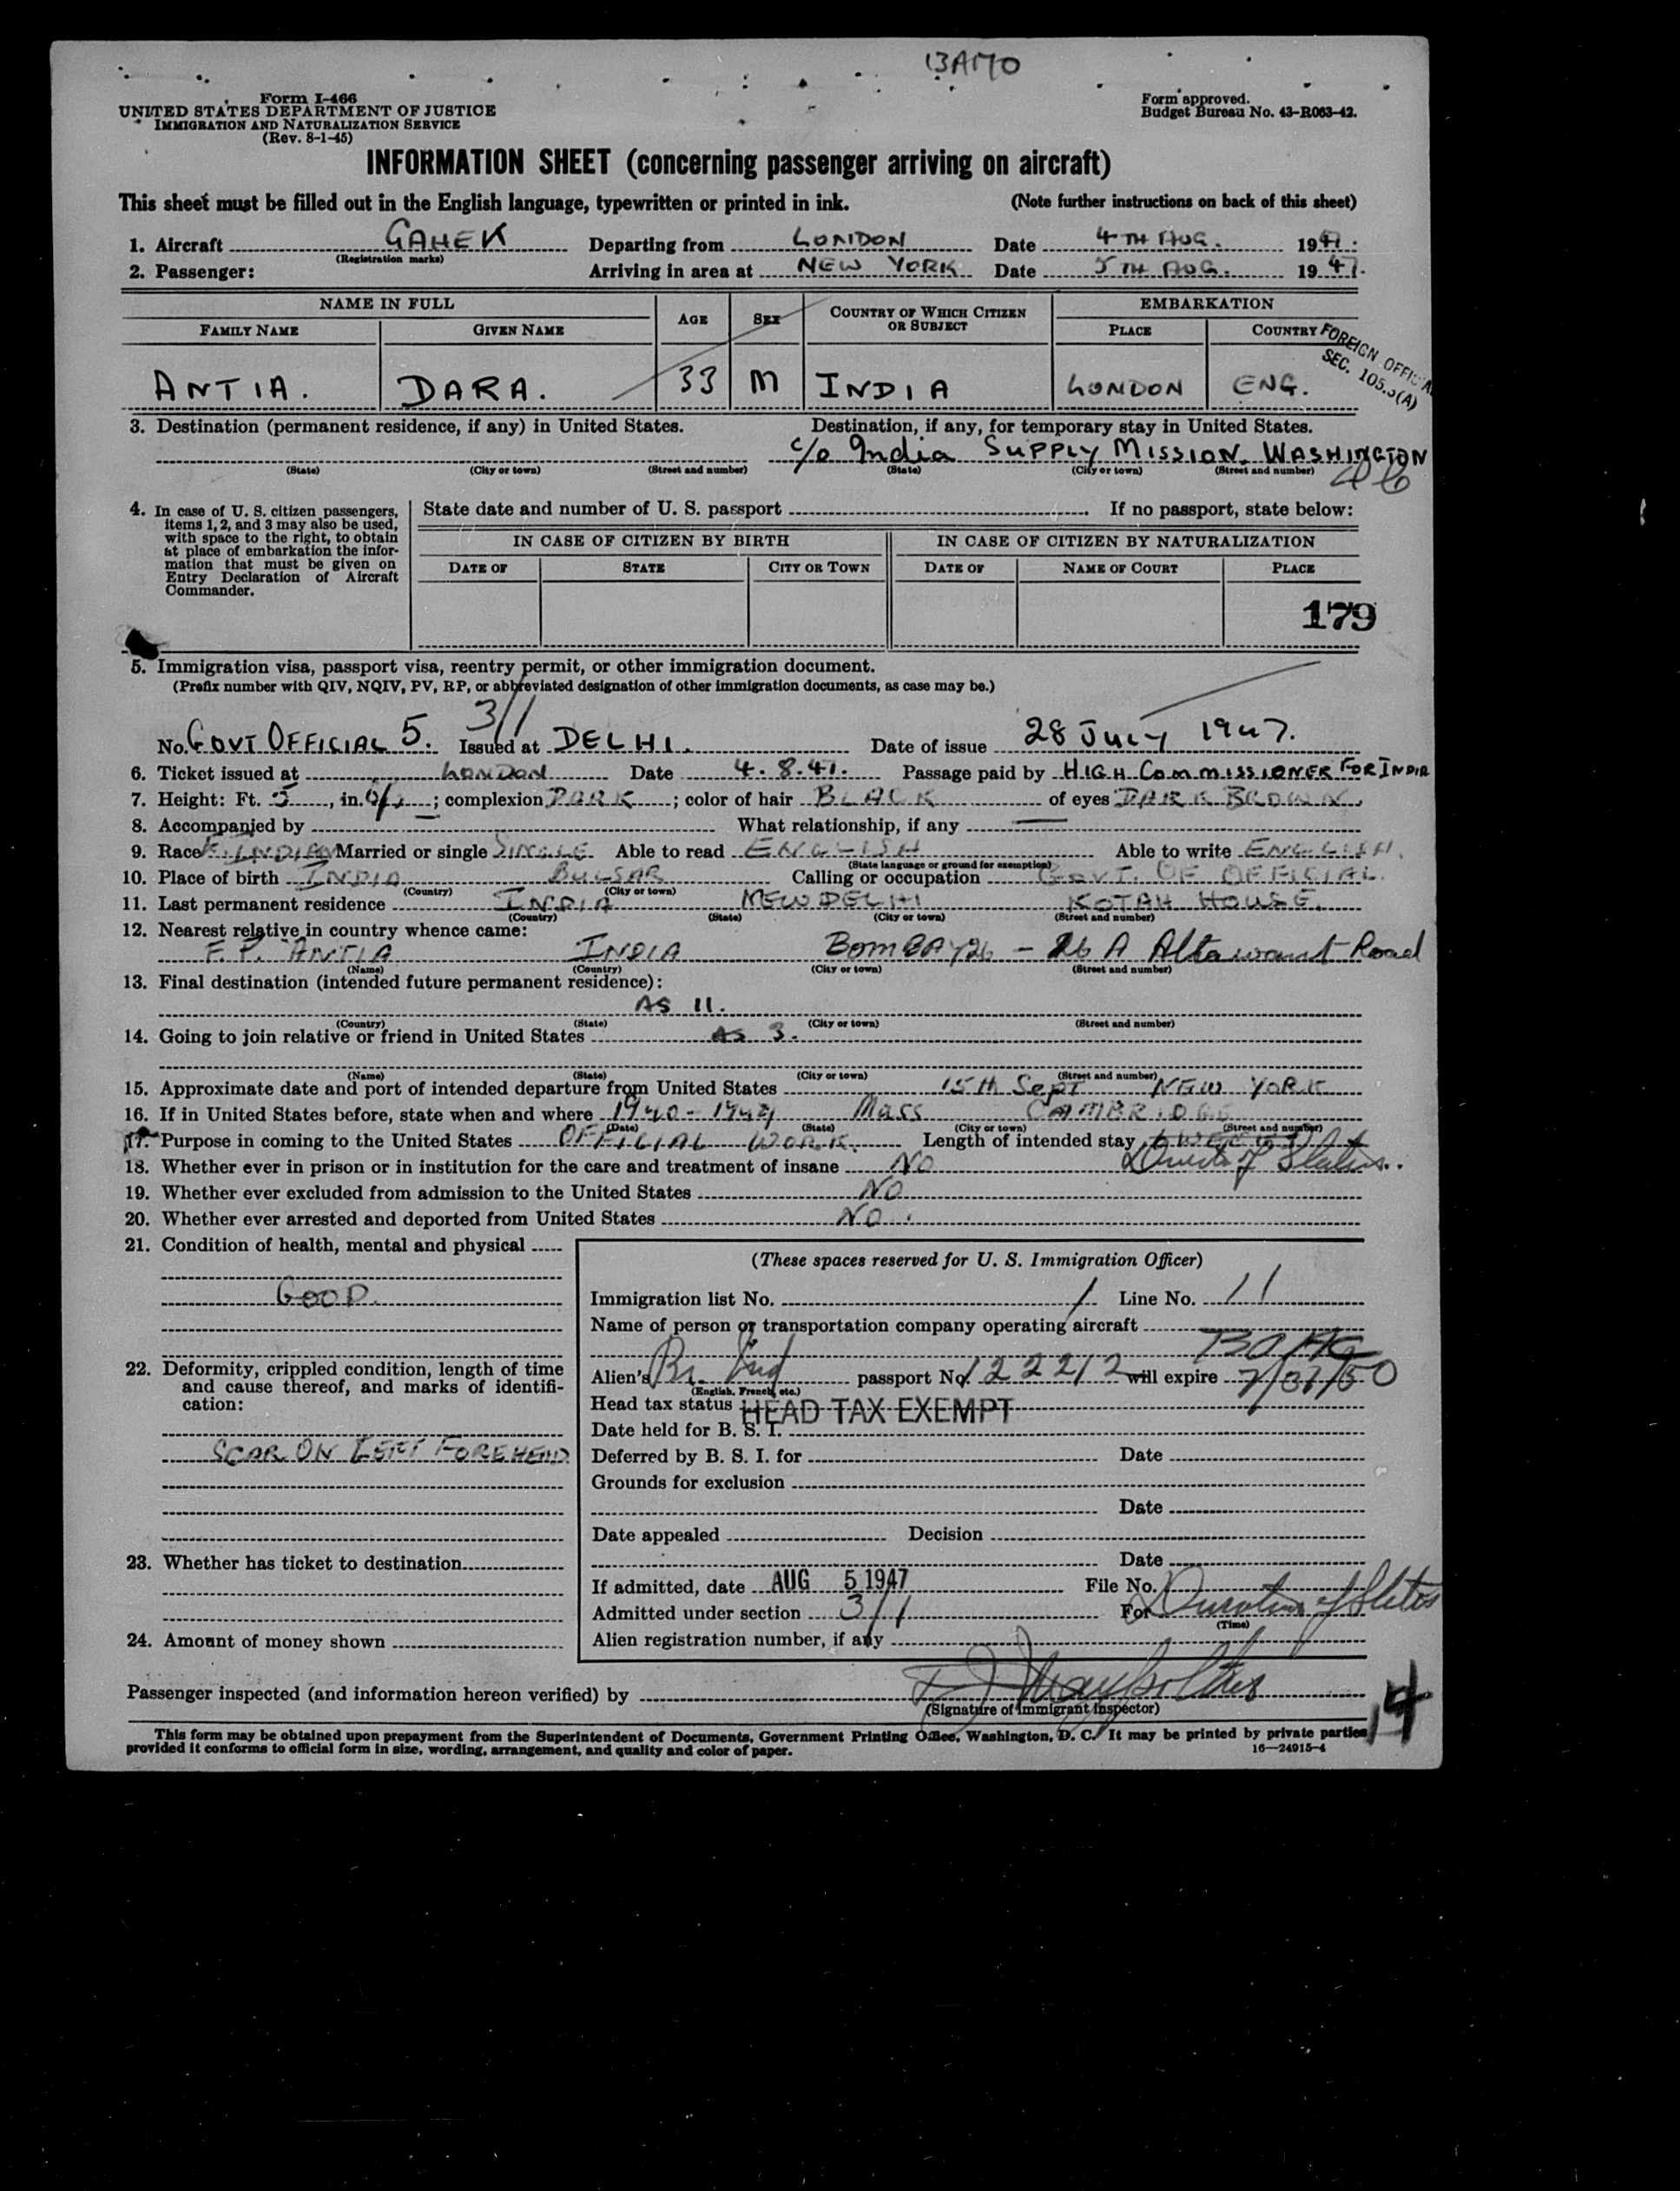 BAMO
Form I-466
UNITED STATES DEPARTMENT OF JUSTICE
IMMIGRATION AND NATURALIZATION SERVICE
(Rev. 8-1-45)
Form approved.
Budget Bureau No. 43-R063-42.
INFORMATION SHEET (concerning passenger arriving on aircraft)
This sheet must be filled out in the English language, typewritten or printed in ink. (Note further instructions on back of this sheet)
1. Aircraft GAHEK Departing from LONDON Date 4TH AUG. 1947.
(Registration marks)
2. Passenger: Arriving in area at NEW YORK Date 5TH AUG. 1947.
NAME IN FULL AGE SEX COUNTRY OF WHICH CITIZEN OR SUBJECT EMBARKATION
FAMILY NAME GIVEN NAME PLACE COUNTRY
FOREIGN OFFICIAL
SEC. 105.3(A)
ANTIA. DARA. 33 M INDIA LONDON ENG.
3. Destination (permanent residence, if any) in United States. Destination, if any, for temporary stay in United States.
c/o India SUPPLY MISSION, WASHINGTON
(State) (City or town) (Street and number) (State) (City or town) (Street and number)
4. In case of U. S. citizen passengers, items 1, 2, and 3 may also be used, with space to the right, to obtain at place of embarkation the information that must be given on Entry Declaration of Aircraft Commander.
State date and number of U. S. passport If no passport, state below:
IN CASE OF CITIZEN BY BIRTH IN CASE OF CITIZEN BY NATURALIZATION
DATE OF STATE CITY OR TOWN DATE OF NAME OF COURT PLACE
179
5. Immigration visa, passport visa, reentry permit, or other immigration document.
(Prefix number with QIV, NQIV, PV, RP, or abbreviated designation of other immigration documents, as case may be.)
3/1
No. GOVT OFFICIAL 5. Issued at DELHI. Date of issue 28 JULY 1947.
6. Ticket issued at LONDON Date 4.8.47. Passage paid by HIGH COMMISSIONER FOR INDIA
7. Height: Ft. 5, in. ; complexion DARK ; color of hair BLACK of eyes DARK BROWN.
8. Accompanied by What relationship, if any
9. Race INDIAN Married or single SINGLE Able to read ENGLISH Able to write ENGLISH.
(State language or ground for exemption)
10. Place of birth INDIA BULSAR Calling or occupation GOVT. OF OFFICIAL.
(Country) (City or town)
11. Last permanent residence INDIA NEW DELHI KOTAH HOUSE.
(Country) (State) (City or town) (Street and number)
12. Nearest relative in country whence came:
F. P. ANTIA INDIA BOMBAY 26 - 26 A Altamount Road
(Name) (Country) (City or town) (Street and number)
13. Final destination (intended future permanent residence):
AS 11.
(Country) (State) (City or town) (Street and number)
14. Going to join relative or friend in United States AS 3.
(Name) (State) (City or town) (Street and number)
15. Approximate date and port of intended departure from United States 15TH SEPT NEW YORK
16. If in United States before, state when and where 1940-1944 Mass CAMBRIDGE
(Date) (State) (City or town) (Street and number)
17. Purpose in coming to the United States OFFICIAL WORK. Length of intended stay
18. Whether ever in prison or in institution for the care and treatment of insane NO Durat of Status.
19. Whether ever excluded from admission to the United States NO
20. Whether ever arrested and deported from United States NO.
21. Condition of health, mental and physical
GOOD.
22. Deformity, crippled condition, length of time and cause thereof, and marks of identification:
SCAR ON LEFT FOREHEAD
23. Whether has ticket to destination
24. Amount of money shown
(These spaces reserved for U. S. Immigration Officer)
Immigration list No. 1 Line No. 11
Name of person or transportation company operating aircraft
BOAC
Alien's Br. Ind passport No. 122212 will expire 7/31/50
(English, French, etc.)
Head tax status HEAD TAX EXEMPT
Date held for B. S. I.
Deferred by B. S. I. for Date
Grounds for exclusion
Date
Date appealed Decision
Date
If admitted, date AUG 5 1947 File No.
Admitted under section 3/1 For Duration of Status
(Time)
Alien registration number, if any
Passenger inspected (and information hereon verified) by
(Signature of Immigrant Inspector)
14
This form may be obtained upon prepayment from the Superintendent of Documents, Government Printing Office, Washington, D. C. It may be printed by private parties
provided it conforms to official form in size, wording, arrangement, and quality and color of paper. 16—24915-4